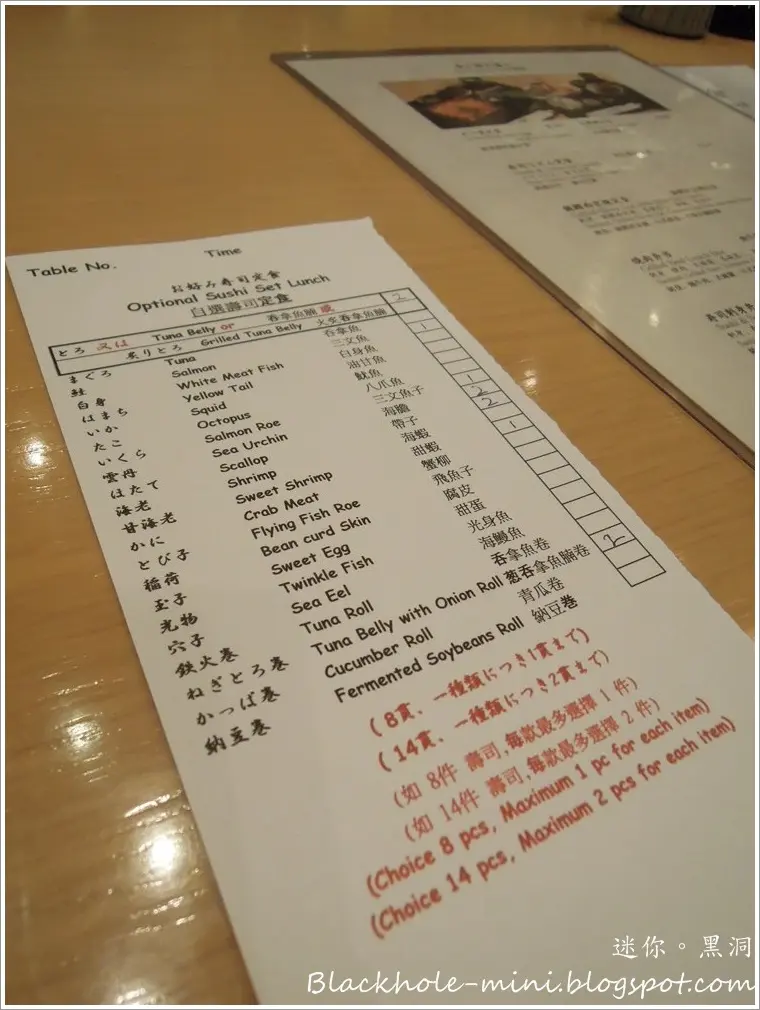 Table No. Time
お好み寿司定食
Optional Sushi Set Lunch
自選壽司定食
とろ 又は Tuna Belly or 吞拿魚腩 或 2
炙りとろ Grilled Tuna Belly 火炙吞拿魚腩
まぐろ Tuna 吞拿魚 1
鮭 Salmon 三文魚
白身 White Meat Fish 白身魚
はまち Yellow Tail 油甘魚 1
いか Squid 魷魚 2
たこ Octopus 八爪魚 2
いくら Salmon Roe 三文魚子 1
雲丹 Sea Urchin 海膽
ほたて Scallop 帶子
海老 Shrimp 海蝦
甘海老 Sweet Shrimp 甜蝦
かに Crab Meat 蟹柳
とび子 Flying Fish Roe 飛魚子
稲荷 Bean curd Skin 腐皮
玉子 Sweet Egg 甜蛋
光物 Twinkle Fish 光身魚
穴子 Sea Eel 海鰻魚
鉄火巻 Tuna Roll 吞拿魚卷
ねぎとろ巻 Tuna Belly with Onion Roll 葱吞拿魚腩卷 2
かっぱ巻 Cucumber Roll 青瓜卷
納豆巻 Fermented Soybeans Roll 納豆巻
(8貫、一種類につき1貫まで)
(14貫、一種類につき2貫まで)
(如 8件 壽司,每款最多選擇 1 件)
(如 14件 壽司,每款最多選擇 2 件)
(Choice 8 pcs, Maximum 1 pc for each item)
(Choice 14 pcs, Maximum 2 pcs for each item)
迷你。黑洞
Blackhole-mini.blogspot.com